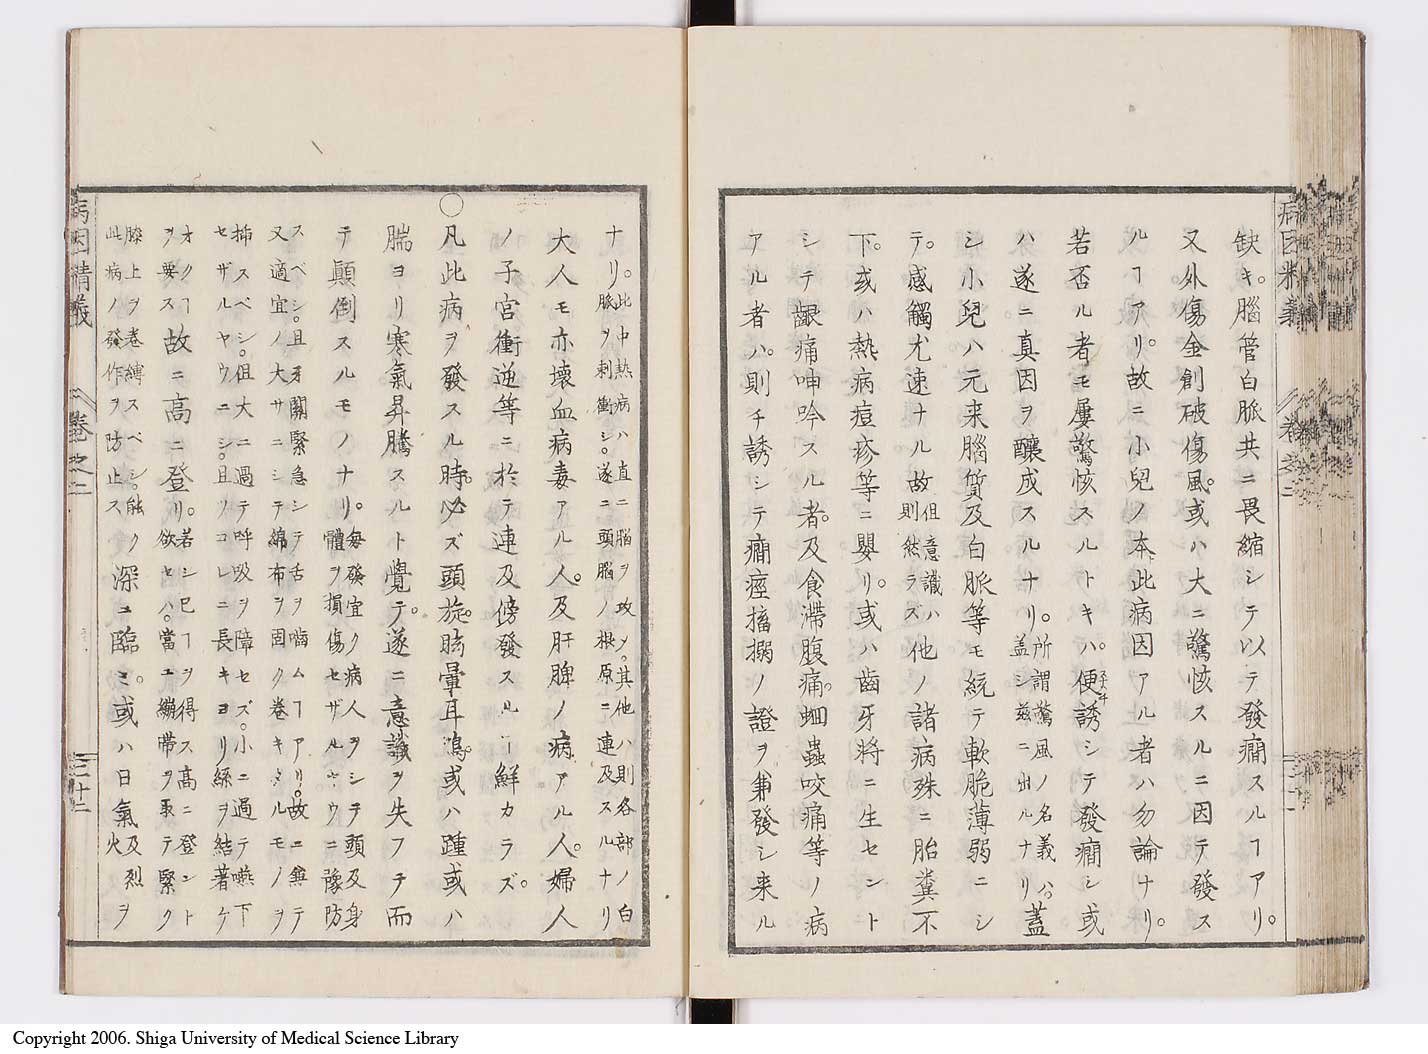 病因精義 卷之二
缺キ。腦管白脈共ニ畏縮シテ以テ發癇スルヿアリ。
又外傷金創破傷風。或ハ大ニ驚怪スルニ因テ發ス
ルヿアリ。故ニ小兒ノ本此病因アル者ハ勿論ナリ。
若否ル者モ屢驚怪スルトキハ。便誘シテ發癇シ或
ハ遂ニ真因ヲ釀成スルナリ。所謂驚風ノ名義ハ。蓋シ茲ニ出ルナリ蓋
シ小兒ハ元来腦質及白脈等モ統テ軟脆薄弱ニシ
テ。感觸尤速ナル故但意識ハ則然ラズ他ノ諸病殊ニ胎糞不
下。或ハ熱病痘疹等ニ嬰リ。或ハ齒牙將ニ生セント
シテ齦痛呻吟スル者。及食滯腹痛。蛔蟲咬痛等ノ病
アル者ハ。則チ誘シテ癇痙搐搦ノ證ヲ兼發シ来ル
ナリ。此中熱病ハ直ニ腦ヲ攻メ。其他ハ則各部ノ白
脈ヲ刺衝シ。遂ニ頭腦ノ根原ニ連及スルナリ
大人モ亦壞血病毒アル人。及肝脾ノ病アル人。婦人
ノ子宮衝逆等ニ於テ連及傍發スルヿ鮮カラズ。
○凡此病ヲ發スル時。必ズ頭旋。眩暈耳鳴。或ハ踵或ハ
腨ヨリ寒氣昇騰スルト覺テ。遂ニ意識ヲ失フチ而
テ顛倒スルモノナリ。每發宜ク病人ヲシテ頭及身
體ヲ損傷セザルヤウニ豫防
スベシ。且牙關緊急シテ舌ヲ嚙ムヿアリ。故ニ無テ
又適宜ノ大サニシテ綿布ヲ固ク卷キタルモノヲ
揷スベシ。但大ニ過テ呼吸ヲ障セズ。小ニ過テ嚥下
セザルヤウニシ。且ツコレニ長キヨリ絲ヲ結著ケ
オクヿヲ要ス故ニ高ニ登リ。若シ已ヿヲ得ス高ニ登ント
欲セハ。當ニ繃帶ヲ取テ緊ク
膝上ヲ卷縛スベシ。能ク
此病ノ發作ヲ防止ス深ニ臨ミ。或ハ日氣及烈火ヲ
病因精義 卷之二 三十二
Copyright 2006. Shiga University of Medical Science Library